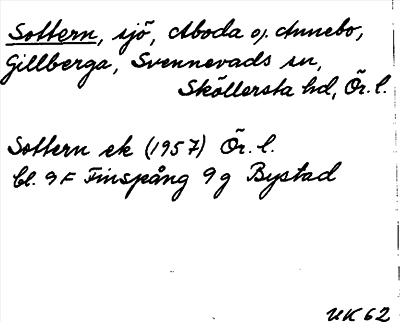 Sottern, sjö, Åboda o. Annebo,
Gillberga, Svennevads sn,
Sköllersta hd, Ör. l.
Sottern ek (1957) Ör. l.
bl. 9F Finspång 9g Bystad
UK62